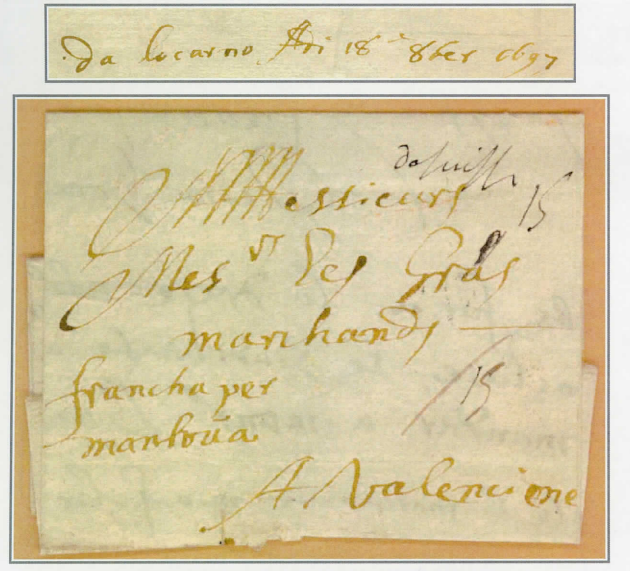 Da locarno Adi 18 8ber 1697
de suisse
Messieurs
15
Mes.rs Les Gras
marchands
francha per
15
mantoūa
A Valencienne